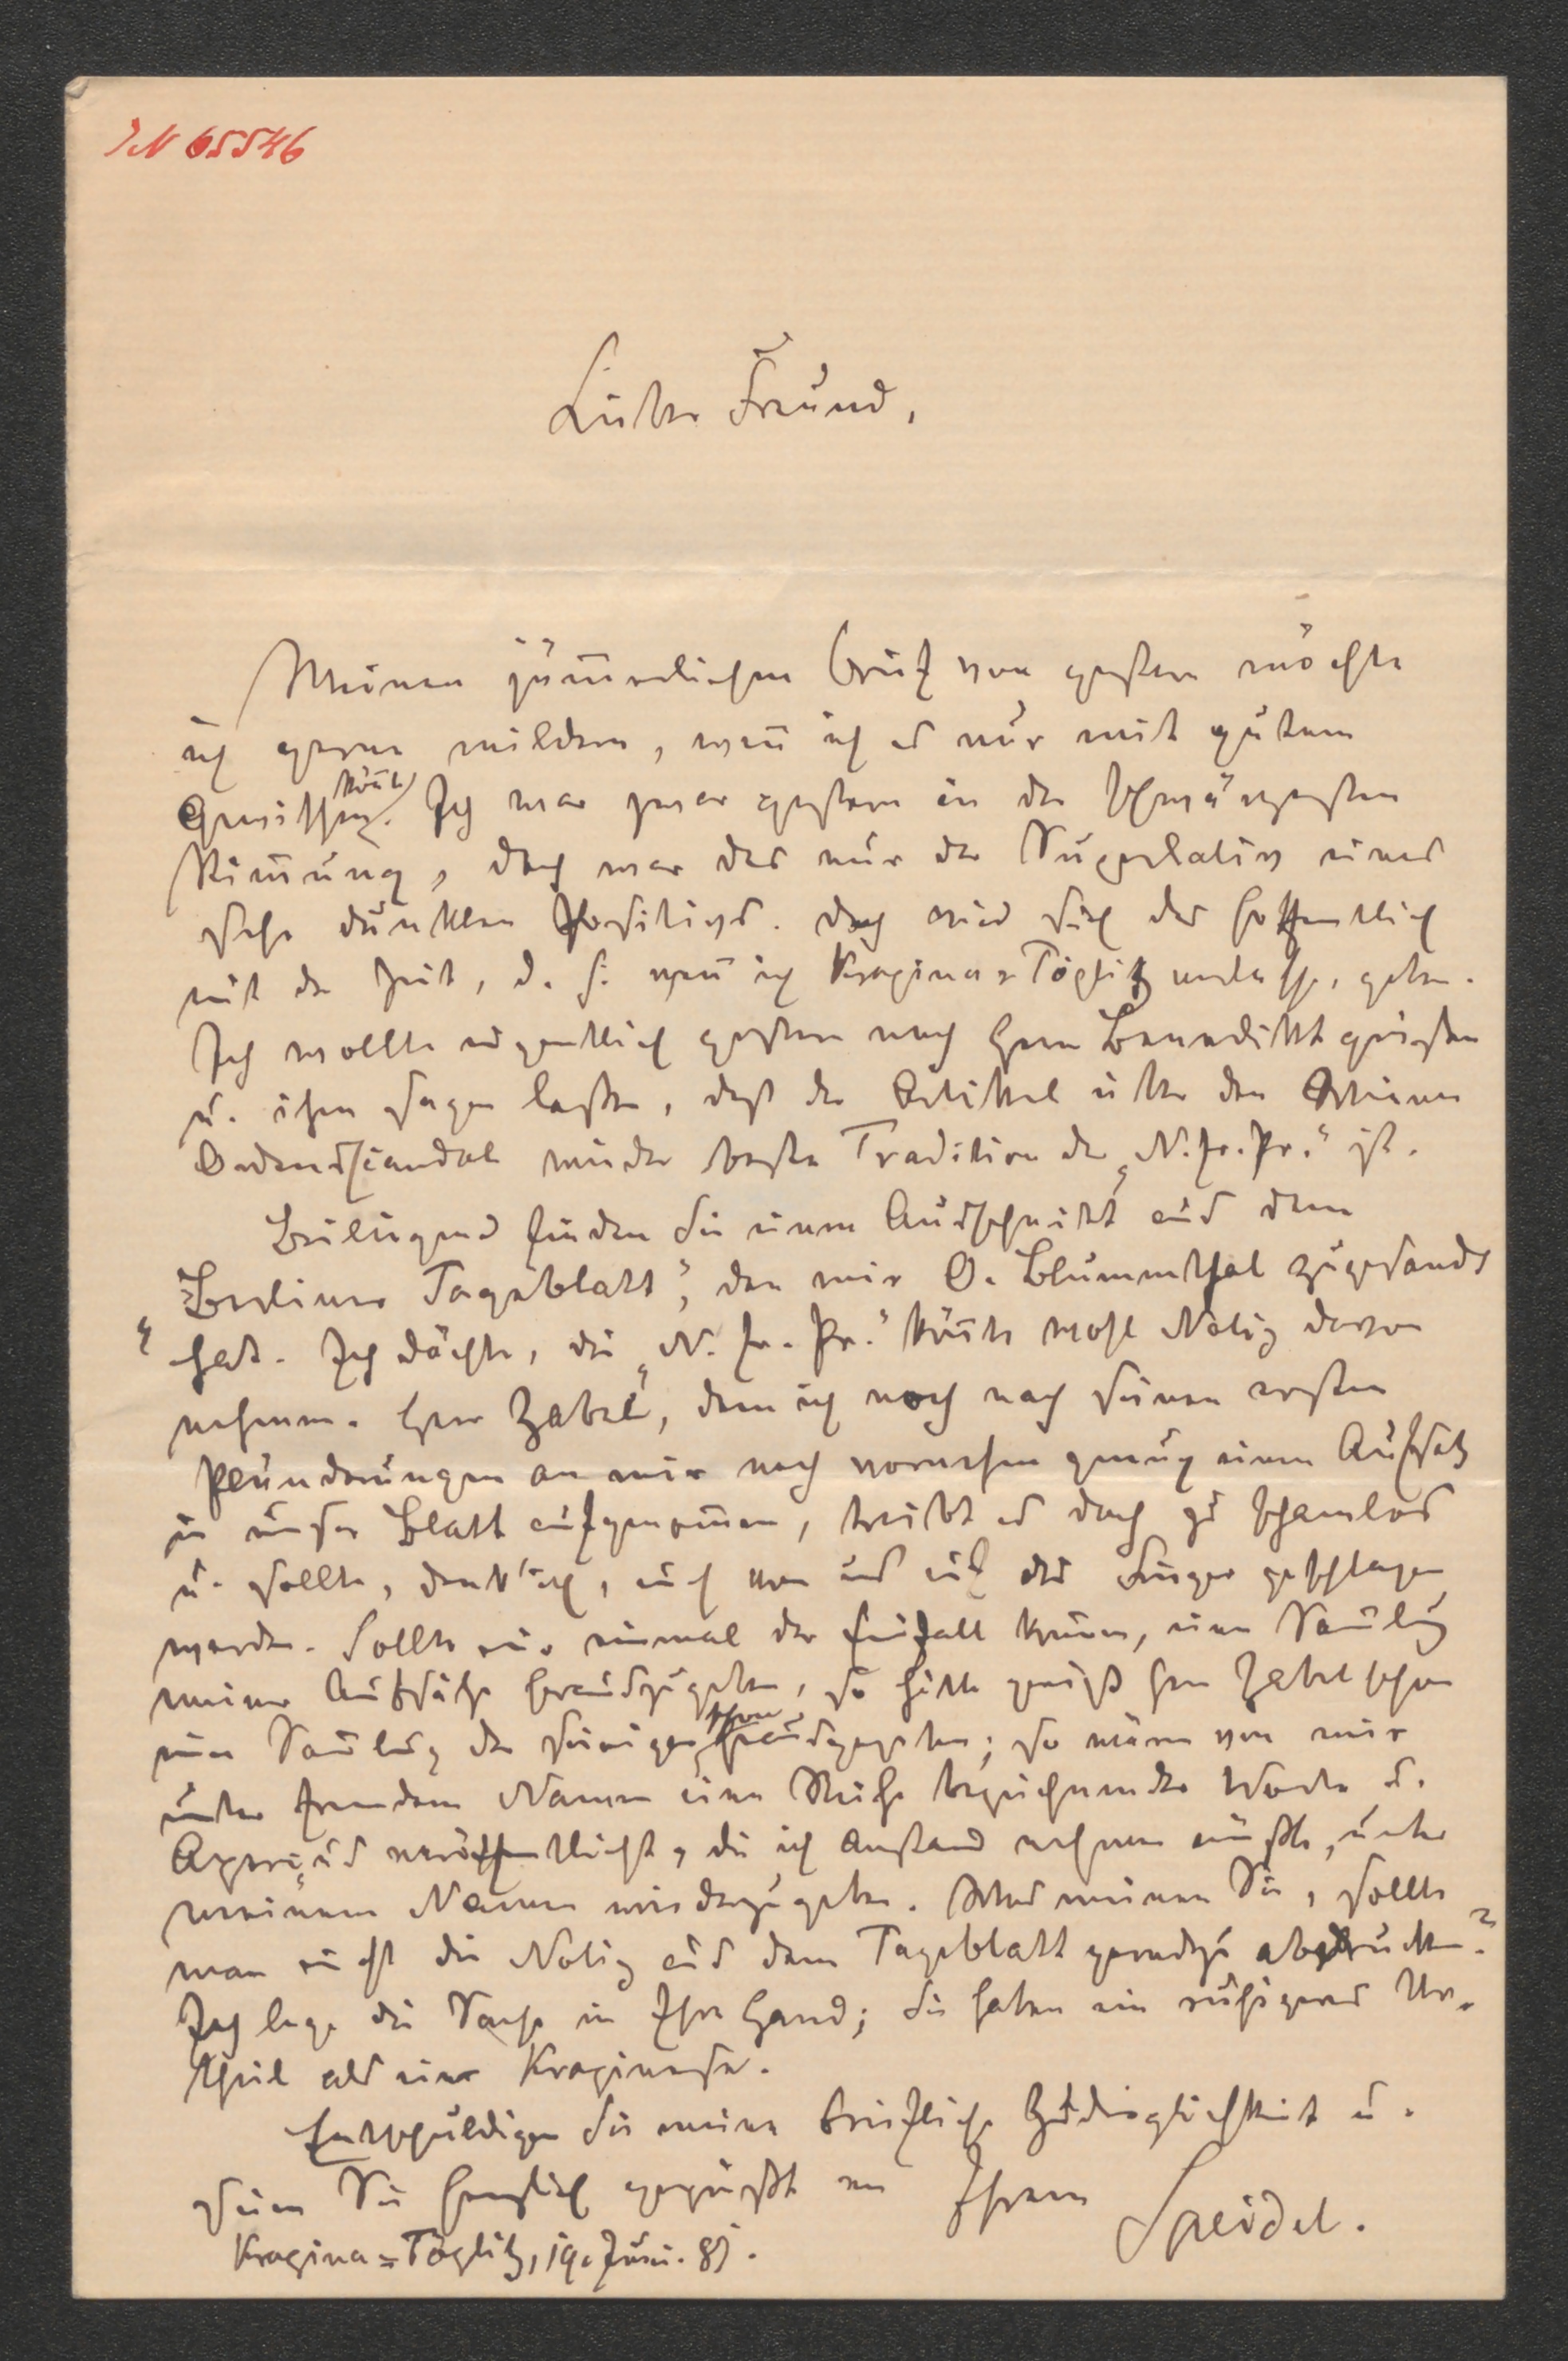 IN 65546
Lieber Freund,
Meinen jämerlichen Brief von gestern möchte
ich gerne mildern, weñ ich es nur mit gutem
Gewissen köñte. Ich war zwar gestern in der schwärzesten
Stim̄ung, doch war das nur der Superlativ eines
sehr dunklen Positivs. Doch wird sich das hoffentlich
mit der Zeit, d. h. weñ ich Krapina-Töplitz verlasse, geben.
Ich wollte eigentlich gestern noch Herrn Benedikt grüßen
u. ihm sagen lassen, daß der Artikel über den Wiener
Ordensscandal wieder beste Tradition der „N. Fr. Pr.“ ist.
Beiliegend finden Sie einen Ausschnitt aus dem
„Berliner Tageblatt“, den mir O. Blumenthal zugesandt
hat. Ich dächte, die „N. Fr. Pr.“ köñte wohl Notiz davon
nehmen. Herr Zabel, dem ich noch nach seinen ersten
Plünderungen an mir noch vornehm genug einen Aufsatz
in unser Blatt aufgenom̄en, treibt es doch zu schamlos
u. sollte, denk' ich, auch von uns auf die Finger geschlagen
werden. Sollte mir einmal der Einfall kom̄en, eine Sam̄lung
meiner Aufsätze herauszugeben, so hätte gewiß Herr Zabel schon
eine Sam̄lung der seinigen schon herausgegeben; so wären von mir
unter fremdem Namen eine Reihe bezeichnender Worte u.
Aperçus veröffentlicht, die ich Anstand nehmen müßte, unter
meinem Namen wiederzugeben. Was meinen Sie, sollte
man nicht die Notiz aus dem Tageblatt geradezu abdrucken?
Ich lege die Sache in Ihre Hand; Sie haben ein ruhigeres Ur-
theil als einer Krapinaser.
Entschuldigen Sie meine briefliche Zudringlichkeit u.
seien Sie herzlich gegrüßt von Ihrem Speidel.
Krapina-Töplitz, 19. Juni. 85.